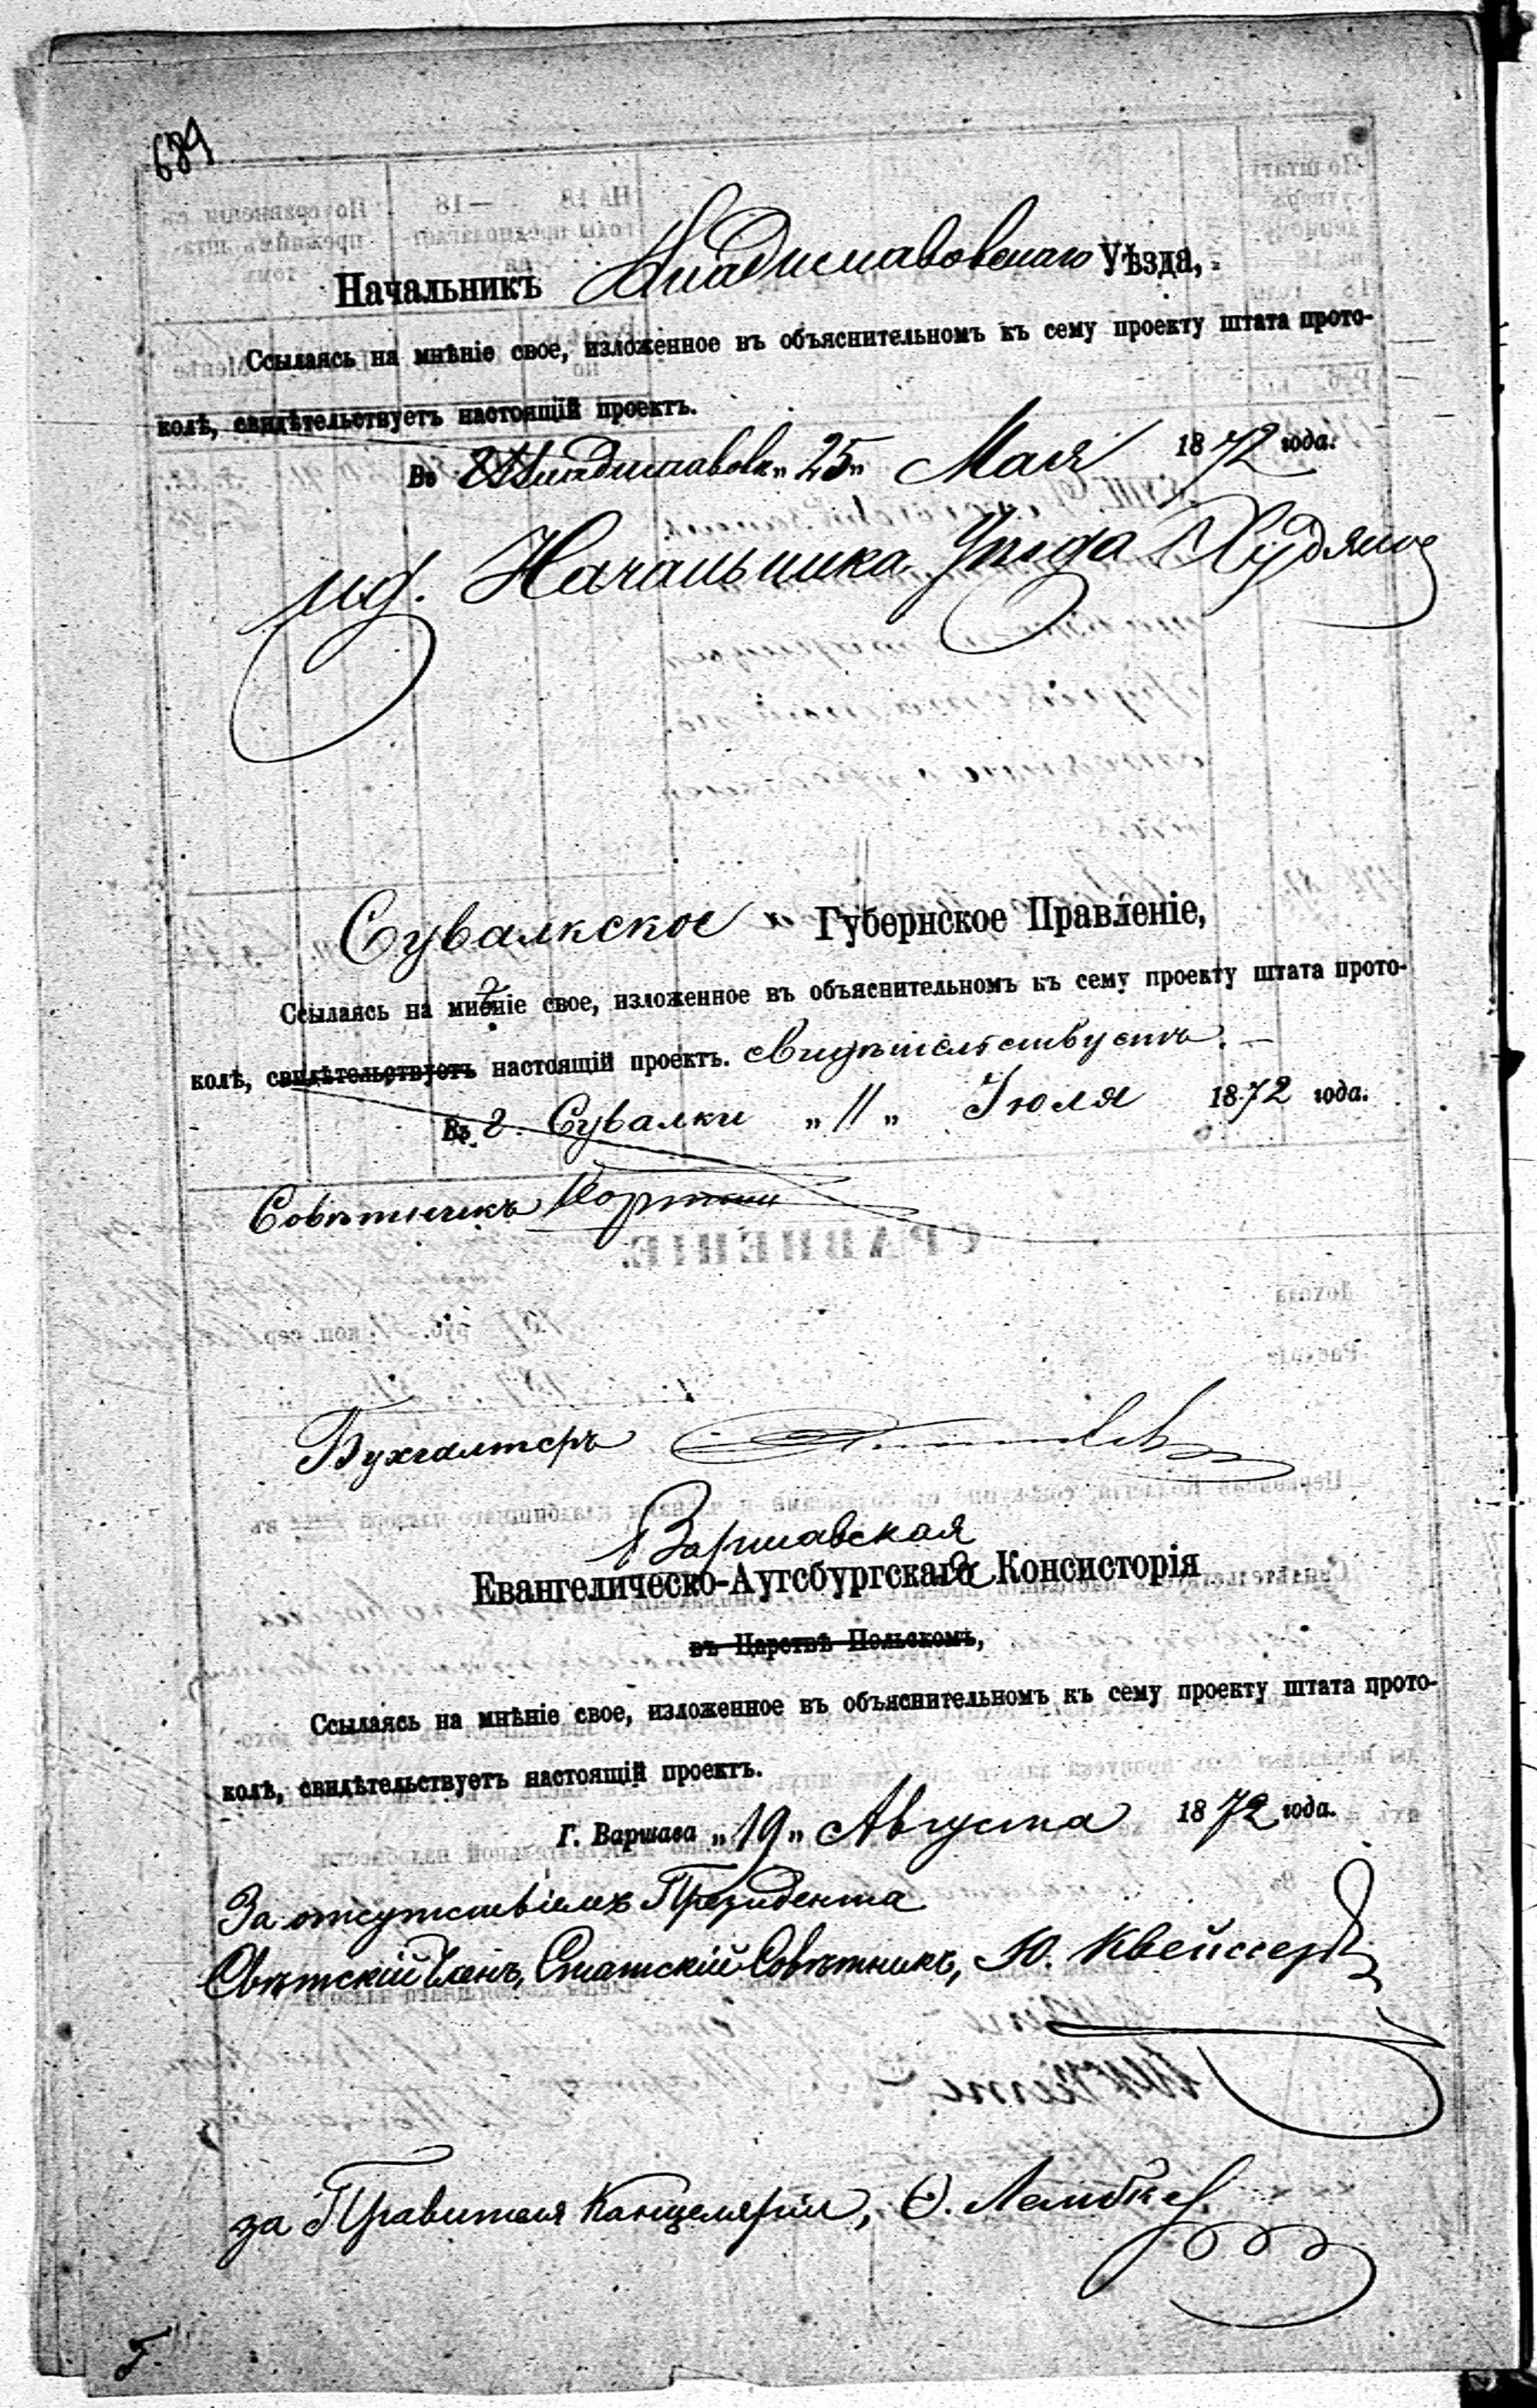 689
Начальникъ Владиславовскаго Уѣзда,
Ссылаясь на мнѣніе свое, изложенное въ объяснительномъ къ сему проекту штата прото-
колѣ, свидѣтельствуетъ настоящій проектъ.
Въ Владиславовѣ „25„ Мая 1872 года.
И.д. Начальника Уѣзда Худяков
Сувалкское Губернское Правленіе,
Ссылаясь на мнѣніе свое, изложенное въ объяснительномъ къ сему проекту штата прото-
колѣ, свидѣтельствуетъ настоящій проектъ. свидѣтельствуетъ.
Въ г. Сувалки „11„ Іюля 1872 года.
Совѣтникъ
Бухгалтеръ
Варшавская
Евангелическо-Аугсбургская Консисторія
въ Царствѣ Польскомъ,
Ссылаясь на мнѣніе свое, изложенное въ объяснительномъ къ сему проекту штата прото-
колѣ, свидѣтельствуетъ настоящій проектъ.
Г. Варшава „19„ Августа 1872 года.
За отсутствіемъ Президента
Свѣтскій Членъ, Статскій Совѣтникъ, Ю. Квейссеръ
за Правителя Канцеляріи, Ѳ. Лембке